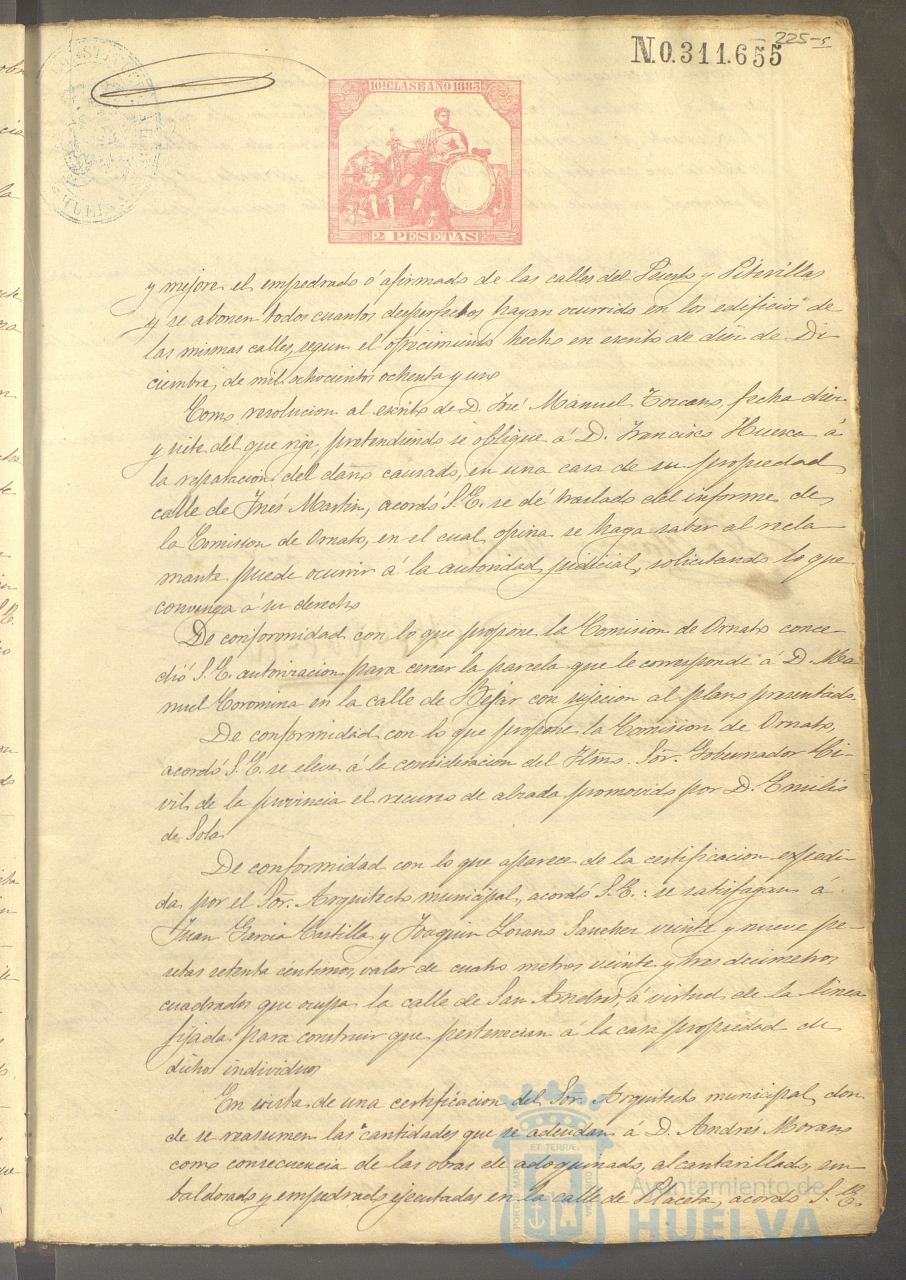 225-5
N.0.311.655
10ª CLASE AÑO 1883
2 PESETAS
y mejore el empedrado ó afirmado de las calles del Puerto y
y se abonen todos cuantos desperfectos hayan ocurrido en los edificios de
las mismas calles, segun el ofrecimiento hecho en escrito de diez de Di
ciembre de mil ochocientos ochenta y uno
Como resolucion al escrito de D. José Manuel Toscano, fecha diez
y siete del que rige, pretendiendo se obligue á D. Francisco Huesca á
la reparacion del daño causado, en una casa de su propiedad
calle de Inés Martin, acordó S.E. se dé traslado del informe de
la Comision de Ornato, en el cual opina se haga saber al recla
mante puede ocurrir á la autoridad judicial, solicitando lo que
convenga á su derecho
De conformidad con lo que propone la Comision de Ornato conce-
dió S.E. autorizacion para cercar la parcela que le corresponde á D. Ma
nuel Coromina en la calle de Bejar con sujecion al plano presentado
De conformidad con lo que propone la Comision de Ornato,
acordó S.E. se eleve á la consideracion del Iltmo. Sor. Gobernador Ci-
vil de la provincia el recurso de alzada promovido por D. Emilio
de Sola.
De conformidad con lo que aparece de la certificacion expedi-
da por el Sor. Arquitecto municipal, acordó S.E.: se satisfagan á
Juan Garcia Castilla y Joaquin Lozano Sanchez veinte y nueve pe-
setas setenta céntimos, valor de cuatro metros veinte y tres decimetros
cuadrados que ocupa la calle de San Andrés, á virtud de la linea
fijada para construir que pertenecian á la casa propiedad de
dichos individuos
En vista de una certificacion del Sor. Arquitecto municipal, don
de se reasumen las cantidades que se adeudan á D. Andrés Morano
como consecuencia de las obras de adoquinado, alcantarillado, em
baldosado y empedrado ejecutadas en la calle de Placeta, acordó S.E.
Ayuntamiento de
HUELVA